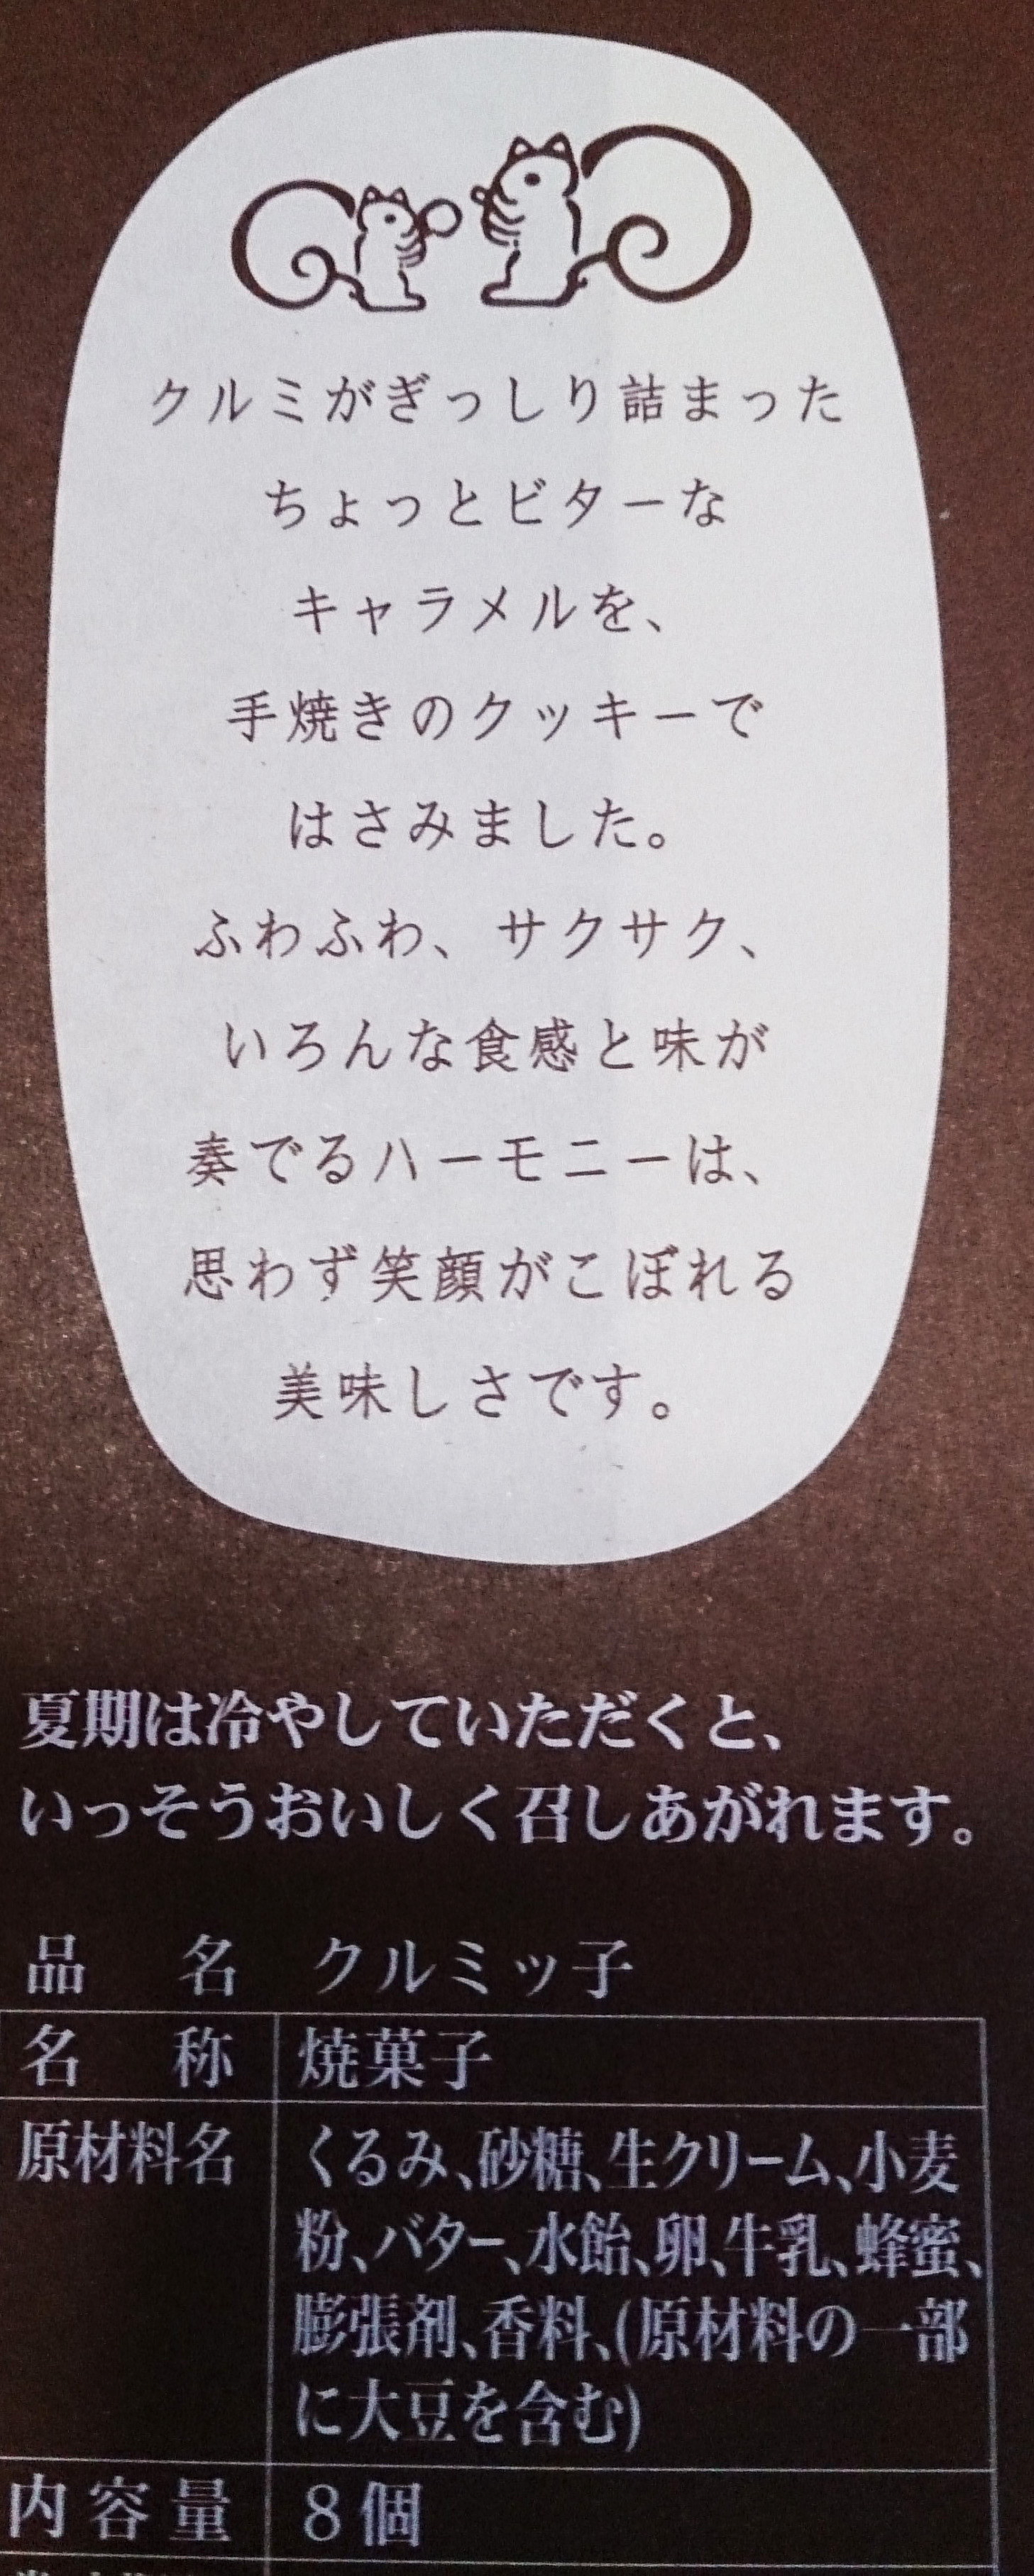 クルミがぎっしり詰まった
ちょっとビターな
キャラメルを、
手焼きのクッキーで
はさみました。
ふわふわ、サクサク、
いろんな食感と味が
奏でるハーモニーは、
思わず笑顔がこぼれる
美味しさです。
夏期は冷やしていただくと、
いっそうおいしく召しあがれます。
品名 クルミッ子
名称 焼菓子
原材料名 くるみ、砂糖、生クリーム、小麦
粉、バター、水飴、卵、牛乳、蜂蜜、
膨張剤、香料、(原材料の一部
に大豆を含む)
内容量 8個